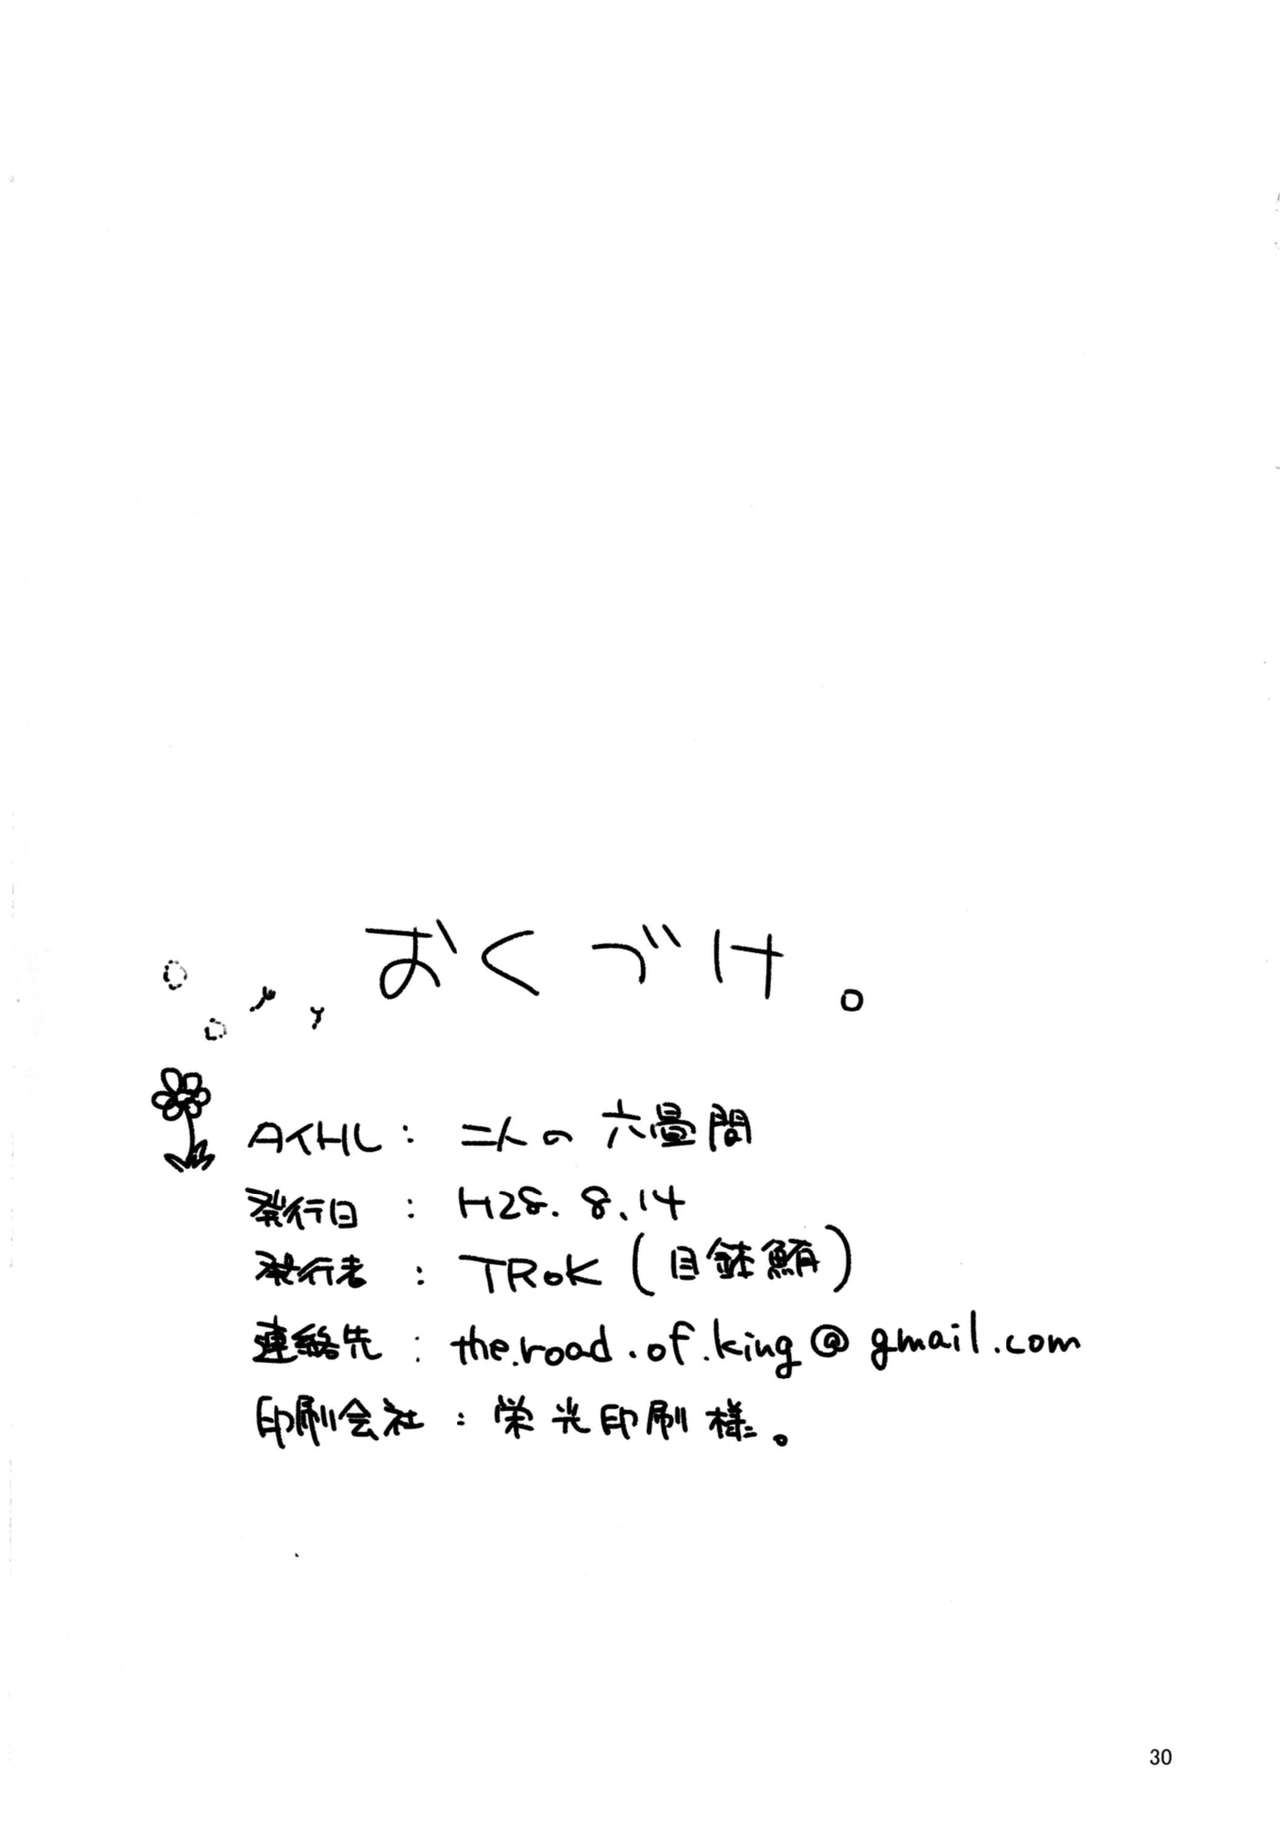 おくづけ。
タイトル: 二人の六畳間
発行日: H28.8.14
発行者: TRoK (目鉢鮪)
連絡先: the.road.of.king@gmail.com
印刷会社: 栄光印刷様。
30